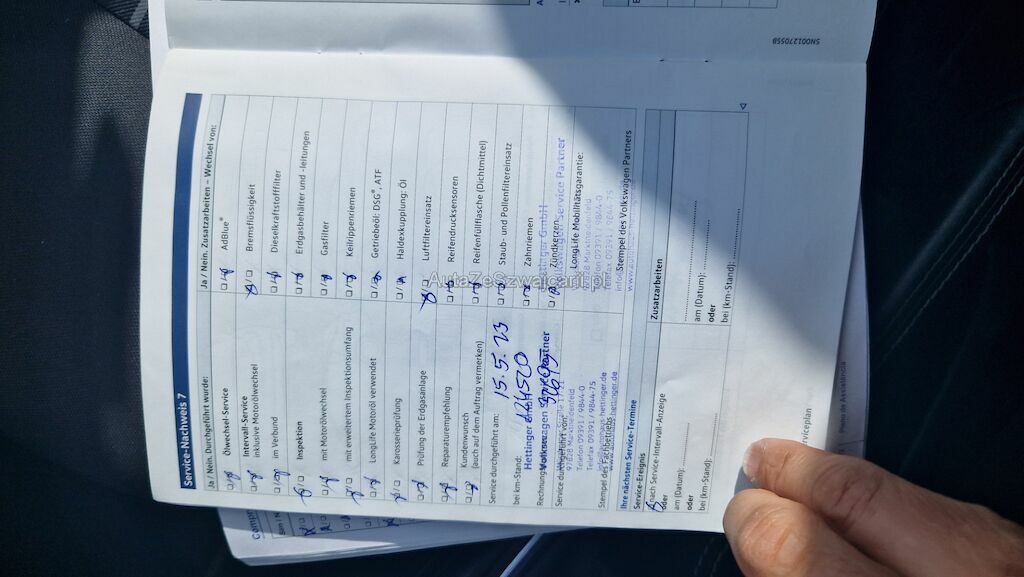 Service-Nachweis 7
Ja / Nein. Durchgeführt wurde:
Ölwechsel-Service
Intervall-Service
inklusive Motorölwechsel
im Verbund
Inspektion
mit Motorölwechsel
mit erweitertem Inspektionsumfang
LongLife Motoröl verwendet
Karosserieprüfung
Prüfung der Erdgasanlage
Reparaturempfehlung
Kundenwunsch
(auch auf dem Auftrag vermerken)
Service durchgeführt am: 15. 5. 23
bei km-Stand: 124520
Hettinger GmbH
Volkswagen Service Partner
Service durchgeführt von:
97828 Marktheidenfeld
Telefon 09391 / 9844-0
Telefax 09391 / 9844-75
Stempel des Fachbetriebs
Ja / Nein. Zusatzarbeiten – Wechsel von:
AdBlue®
Bremsflüssigkeit
Dieselkraftstofffilter
Erdgasbehälter und -leitungen
Gasfilter
Keilrippenriemen
Getriebeöl: DSG®, ATF
Haldexkupplung: Öl
Luftfiltereinsatz
Reifendrucksensoren
Reifenfüllflasche (Dichtmittel)
Staub- und Pollenfiltereinsatz
Zahnriemen
Zündkerzen
Hettinger GmbH
Volkswagen Service Partner
LongLife Mobilitätsgarantie:
97828 Marktheidenfeld
Telefon 09391 / 9844-0
Telefax 09391 / 9844-75
Stempel des Volkswagen Partners
Ihre nächsten Service-Termine
Service-Ereignis
nach Service-Intervall-Anzeige
oder
am (Datum):
oder
bei (km-Stand):
Zusatzarbeiten
am (Datum):
oder
bei (km-Stand):
serviceplan
SN00127055B
AutaZeSzwajcarii.pl